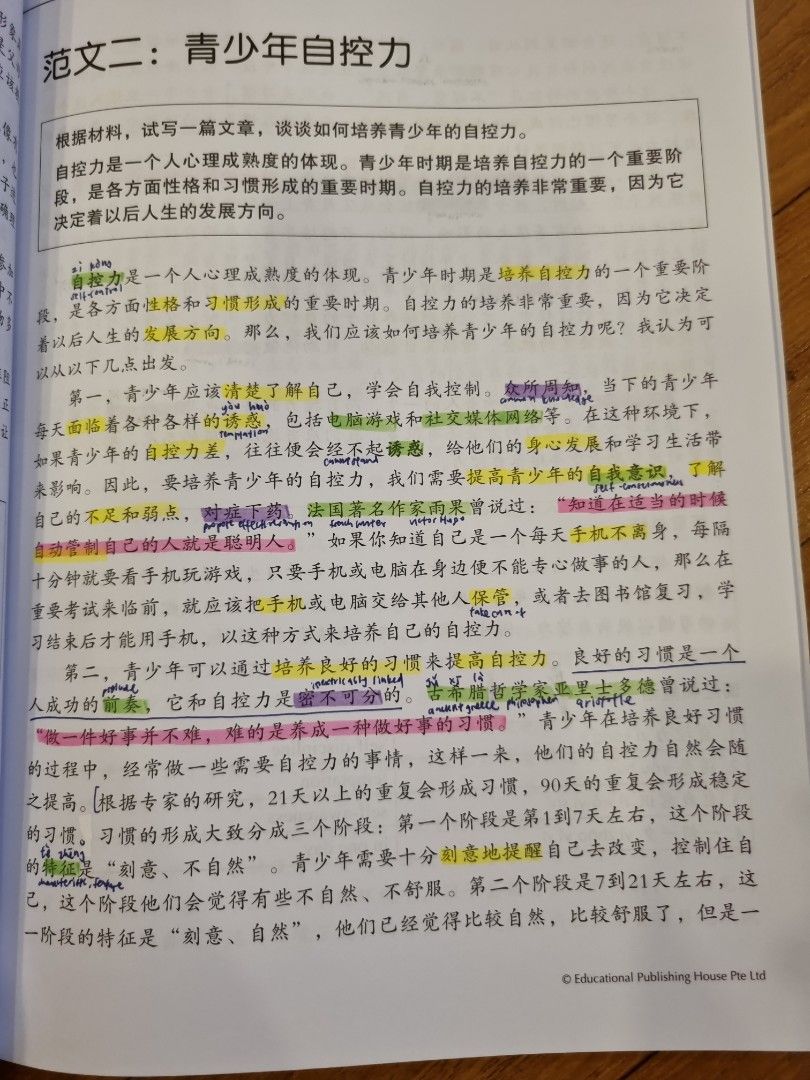 范文二：青少年自控力
根据材料，试写一篇文章，谈谈如何培养青少年的自控力。
自控力是一个人心理成熟度的体现。青少年时期是培养自控力的一个重要阶
段，是各方面性格和习惯形成的重要时期。自控力的培养非常重要，因为它
决定着以后人生的发展方向。
zì kòng
自控力是一个人心理成熟度的体现。青少年时期是培养自控力的一个重要阶
self-control
段，是各方面性格和习惯形成的重要时期。自控力的培养非常重要，因为它决定
着以后人生的发展方向。那么，我们应该如何培养青少年的自控力呢？我认为可
以从以下几点出发。
第一，青少年应该清楚了解自己，学会自我控制。众所周知，当下的青少年
you huo common knowledge
每天面临着各种各样的诱惑，包括电脑游戏和社交媒体网络等。在这种环境下，
temptation
如果青少年的自控力差，往往便会经不起诱惑，给他们的身心发展和学习生活带
cannot stand
来影响。因此，要培养青少年的自控力，我们需要提高青少年的自我意识，了解
self-consciousness
自己的不足和弱点，对症下药。法国著名作家雨果曾说过：“知道在适当的时候
french writer victor hugo
自动管制自己的人就是聪明人。”如果你知道自己是一个每天手机不离身，每隔
十分钟就要看手机玩游戏，只要手机或电脑在身边便不能专心做事的人，那么在
重要考试来临前，就应该把手机或电脑交给其他人保管，或者去图书馆复习，学
take care of
习结束后才能用手机，以这种方式来培养自己的自控力。
第二，青少年可以通过培养良好的习惯来提高自控力。良好的习惯是一个
linked
人成功的前奏，它和自控力是密不可分的。古希腊哲学家亚里士多德曾说过：
ancient greece philosopher aristotle
“做一件好事并不难，难的是养成一种做好事的习惯。”青少年在培养良好习惯
的过程中，经常做一些需要自控力的事情，这样一来，他们的自控力自然会随
之提高。[根据专家的研究，21天以上的重复会形成习惯，90天的重复会形成稳定
的习惯。习惯的形成大致分成三个阶段：第一个阶段是第1到7天左右，这个阶段
tè zhēng
的特征是“刻意、不自然”。青少年需要十分刻意地提醒自己去改变，控制住自
characteristic, feature
己，这个阶段他们会觉得有些不自然、不舒服。第二个阶段是7到21天左右，这
一阶段的特征是“刻意、自然”，他们已经觉得比较自然，比较舒服了，但是一
© Educational Publishing House Pte Ltd